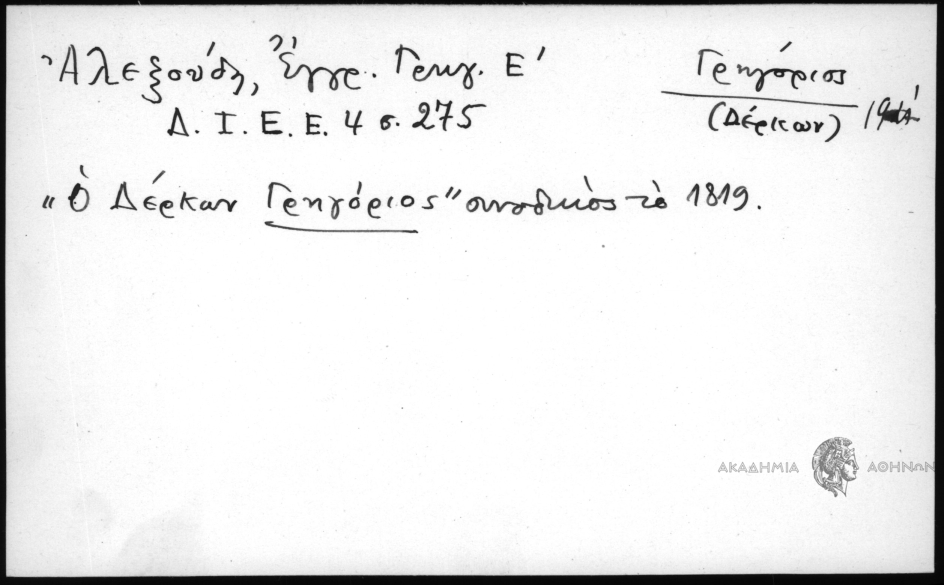 Ἀλεξούδη, Ἔγγρ. Γρηγ. Ε'
Δ. Ι. Ε. Ε. 4 σ. 275
Γρηγόριος
(Δέρκων)
"Ὁ Δέρκων Γρηγόριος" συνοδικὸς τὸ 1819.
ΑΚΑΔΗΜΙΑ ΑΘΗΝΩΝ